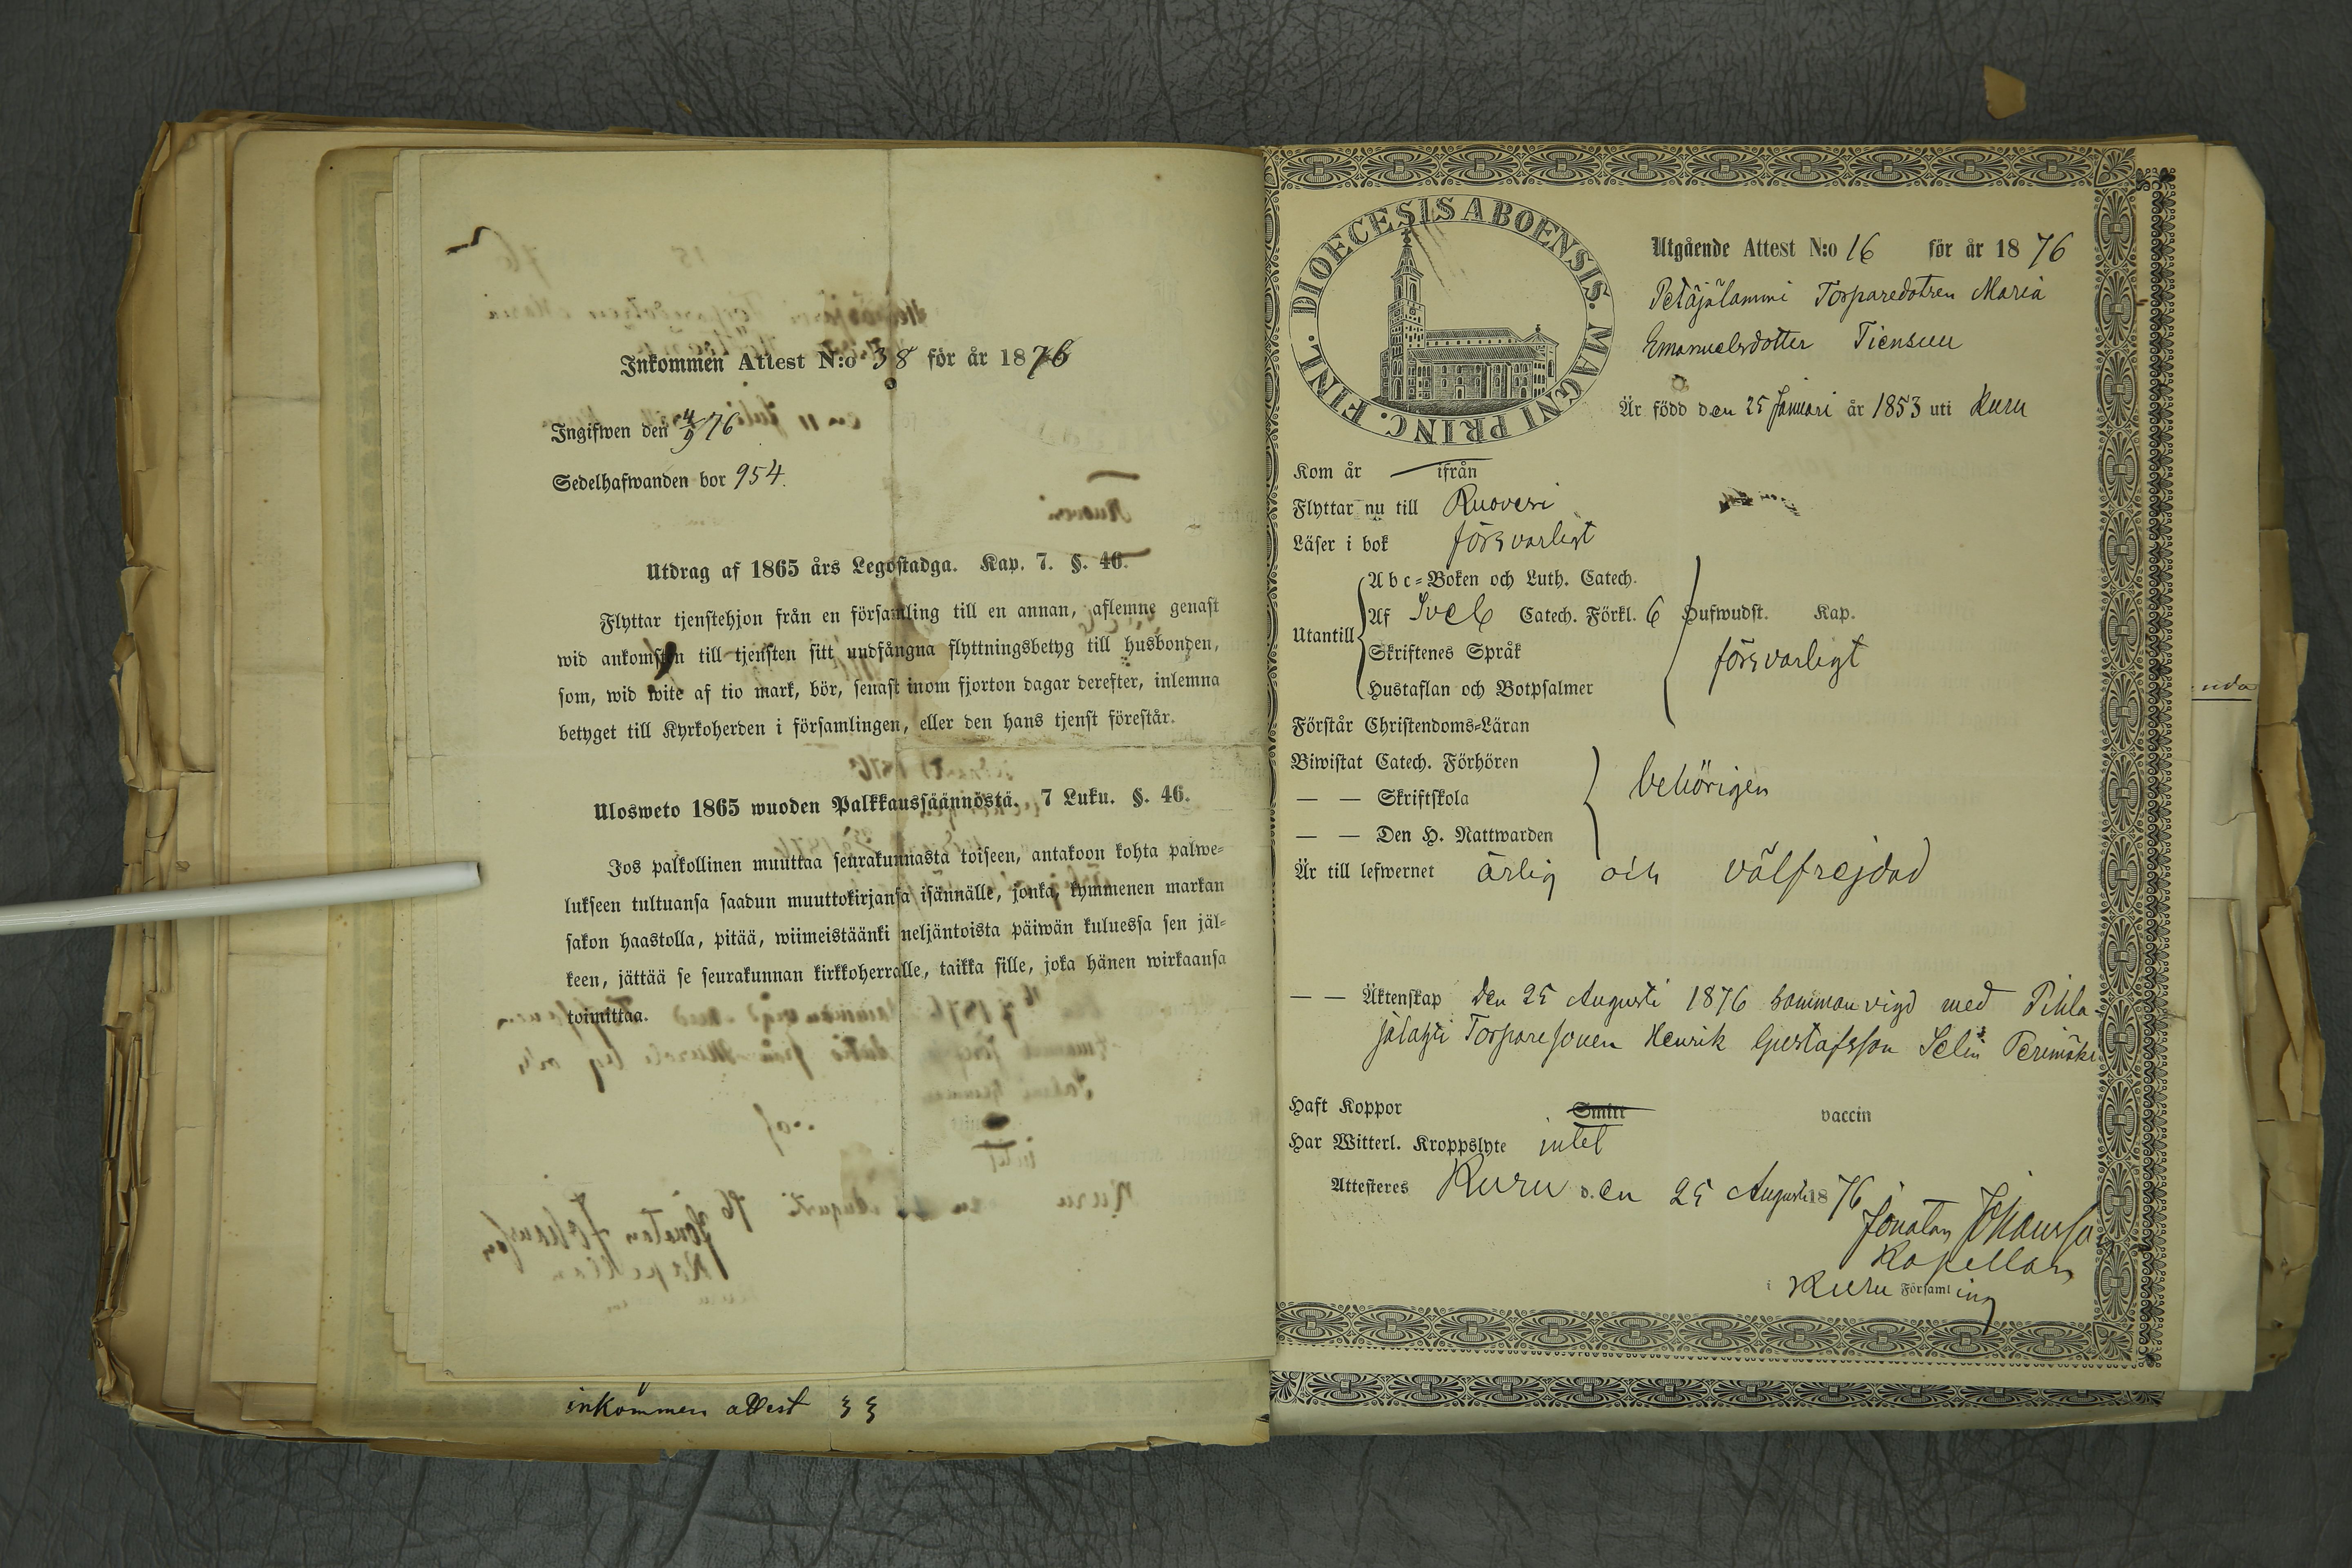 Inkommen Attest N:o 38 för år 1876
Ingifwen den 4/9 76
Sedelhafwanden bor 954.
Utdrag af 1865 års Legostadga. Kap. 7. §. 46.
Flyttar tjenstehjon från en församling till en annan, aflemne genast
wid ankomsten till tjensten sitt undfångna flyttningsbetyg till husbonden,
som, wid wite af tio mark, bör, senast inom fjorton dagar derefter, inlemna
betyget till Kyrkoherden i församlingen, eller den hans tjenst förestår.
Ulosweto 1865 wuoden Palkkaussäännöstä. 7 Luku. §. 46.
Jos palkollinen muuttaa seurakunnasta toiseen, antakoon kohta palwe-
lukseen tultuansa saadun muuttokirjansa isännälle, jonka, kymmenen markan
sakon haastolla, pitää, wiimeistäänki neljäntoista päiwän kuluessa sen jäl-
keen, jättää se seurakunnan kirkkoherralle, taikka sille, joka hänen wirkaansa
toimittaa.
inkommen attest
DIOECESIS ABOENSIS. MAGNI PRINC. FINL.
Utgående Attest N:o 16 för år 1876
Petäjälammi Torparedotren Maria
Emanuelsdotter Tiensuu
Är född den 25 Januari år 1853 uti Kuru
Kom år — ifrån
Flyttar nu till Ruovesi
Läser i bok försvarligt
Utantill
Abc-Boken och Luth. Catech.
Af Sveb Catech. Förkl. 6 Hufwudst. Kap.
Skriftenes Språk försvarligt
Hustaflan och Botpsalmer
Förstår Christendoms-Läran
Biwistat Catech. Förhören
— — Skriftskola behörigen
— — Den H. Nattwarden
Är till lefwernet ärlig och välfrejdad
— — Äktenskap den 25 Augusti 1876 sammanvigd med Pihla-
jalahti Torparesonen Henrik Gustafsson Selin Perimäki
Haft Koppor Smitt vaccin
Har Witterl. Kroppslyte intet
Attesteres Kuru den 25 Augusti 1876
Jonatan Johansson
Kapellan
i Kuru Församling